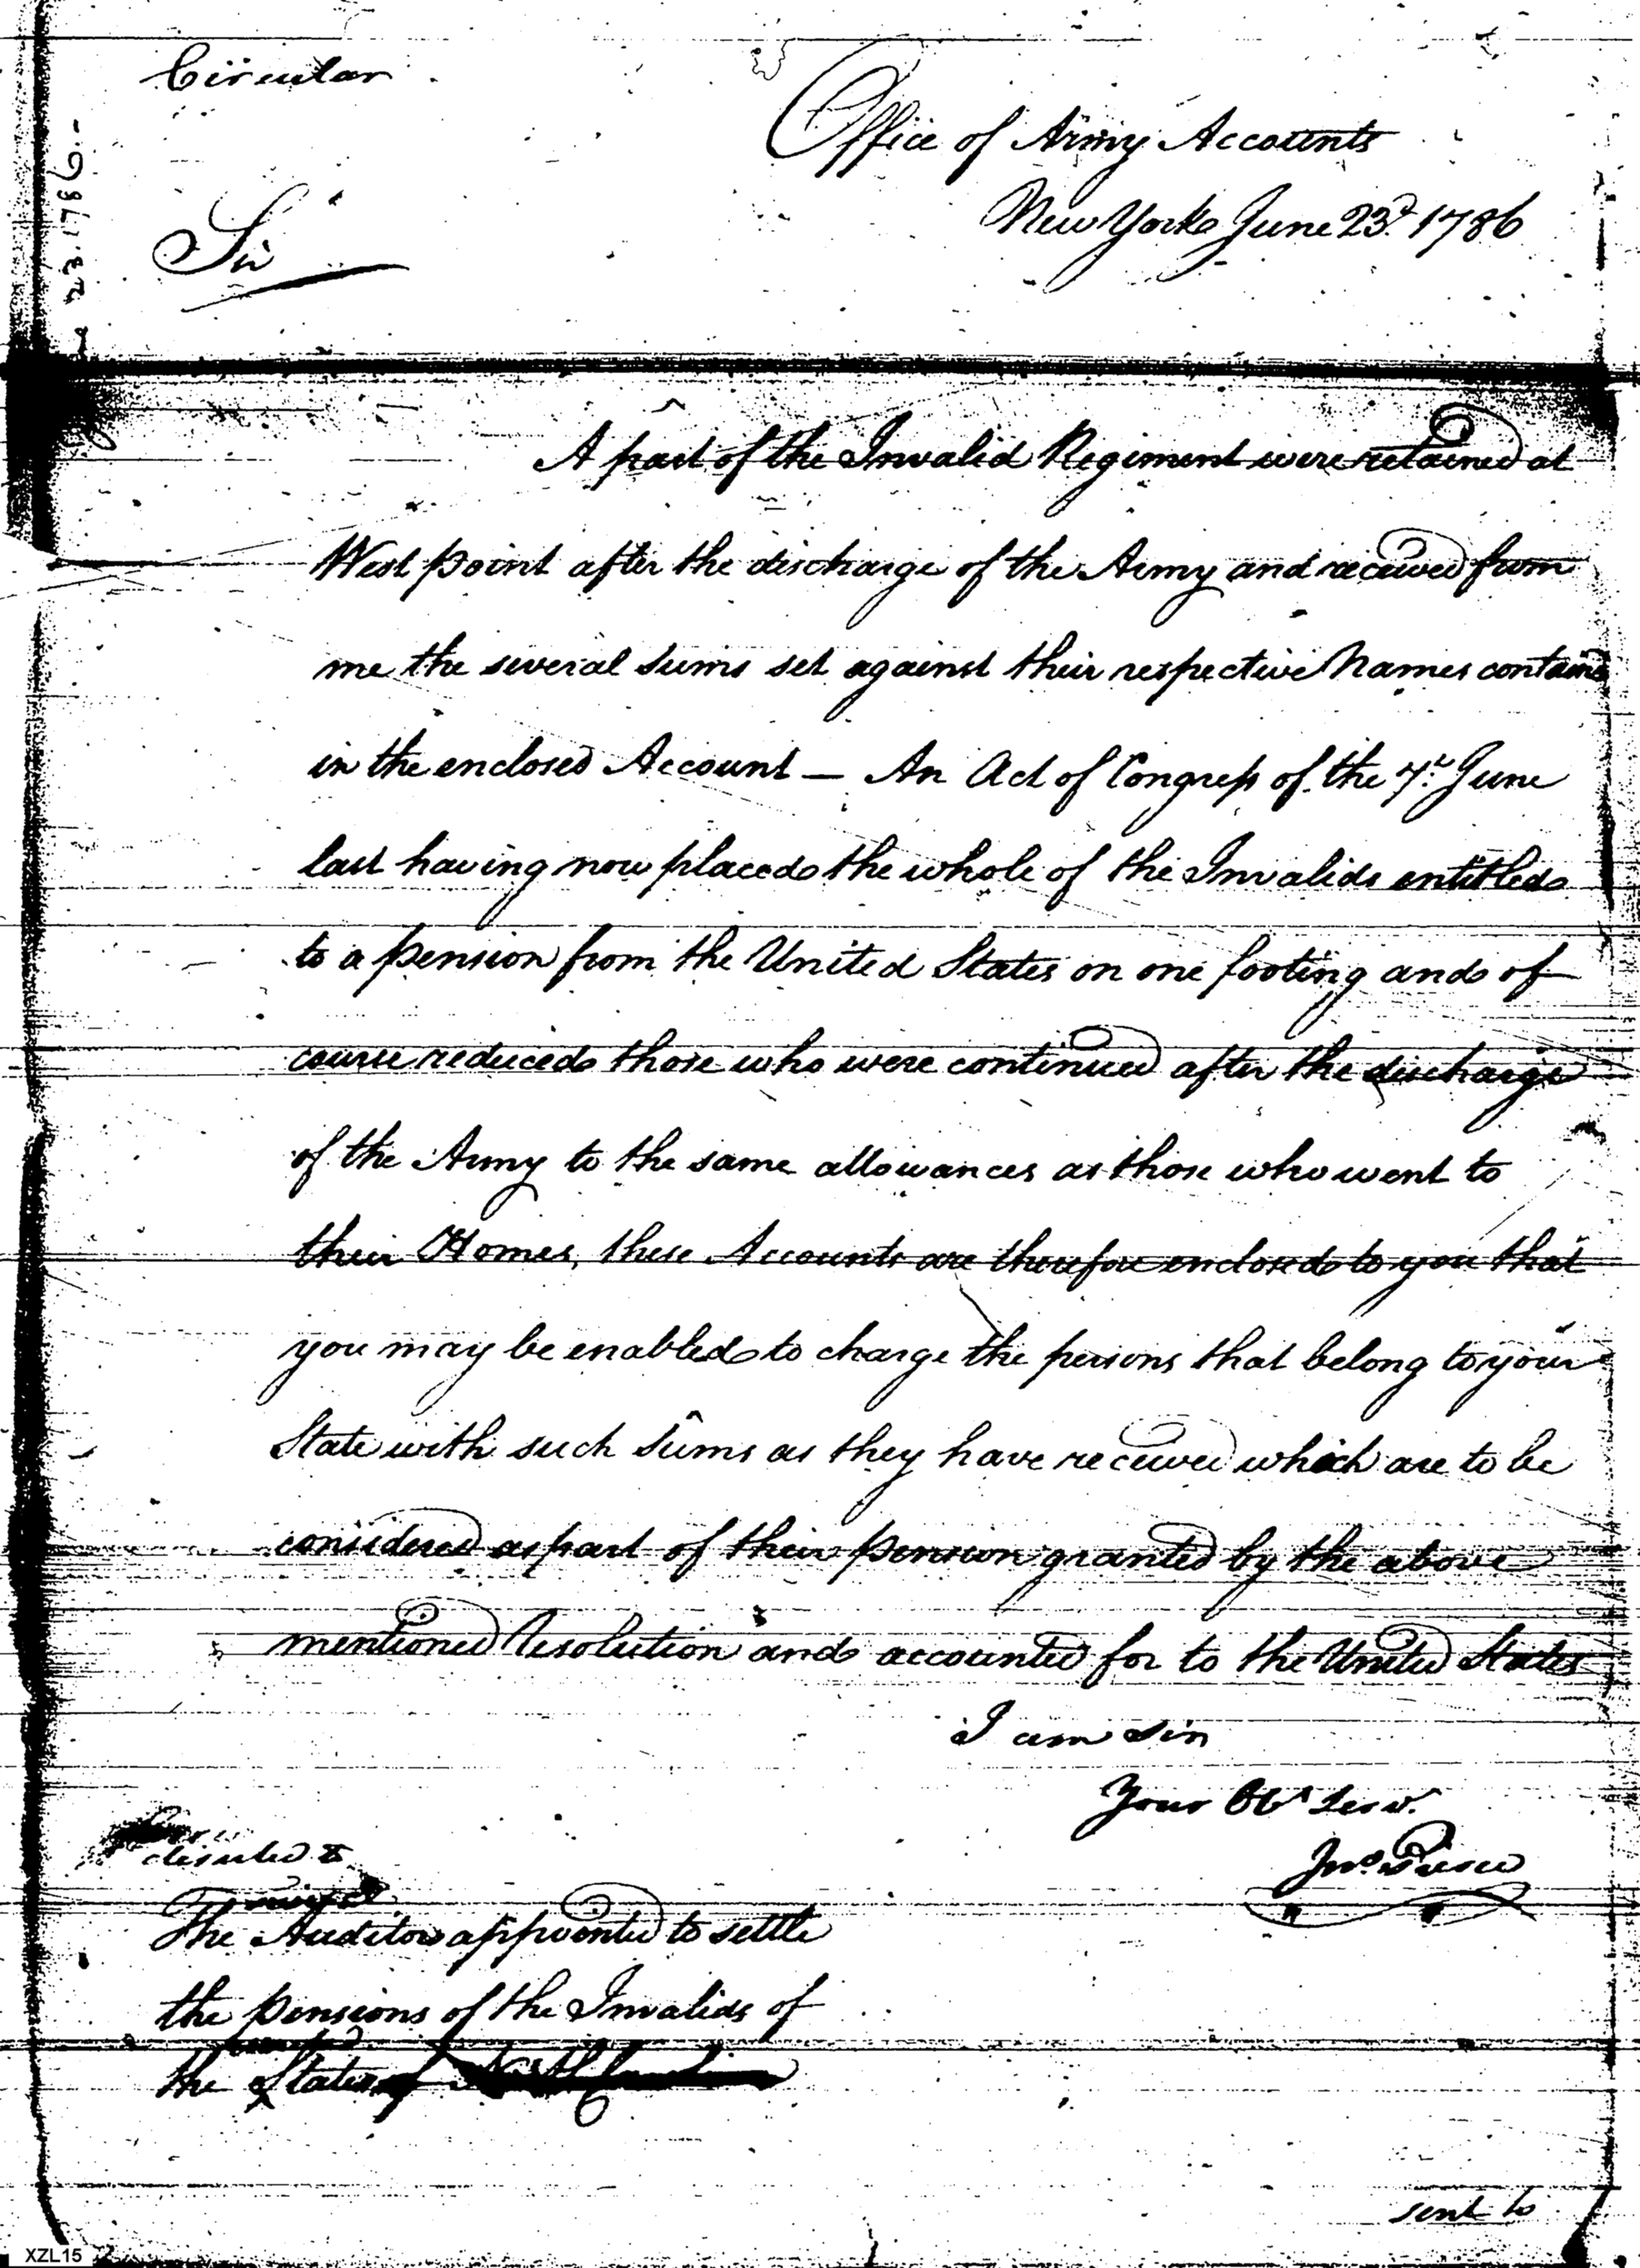 Circular
Office of Army Accounts
New York June 23d. 1786
23. 1786.-
Sir
A part of the Invalid Regiment were retained at
West point after the discharge of the Army and received from
me the several sums set against their respective Names contained
in the enclosed Account — An Act of Congress of the 7th June
last having now placed the whole of the Invalids entitled
to a pension from the United States on one footing and of
course reduced those who were continued after the discharge
of the Army to the same allowances as those who went to
their Homes, these Accounts are therefore enclosed to you that
you may be enabled to charge the persons that belong to your
State with such Sums as they have received which are to be
considered as part of their pension granted by the above
mentioned Resolution and accounted for to the United States
I am Sir
Your Obt Servt.
Jno Pierce
directed to
The Auditor appointed to settle
the pensions of the Invalids of
the State of North Carolina
sent to
XZL15